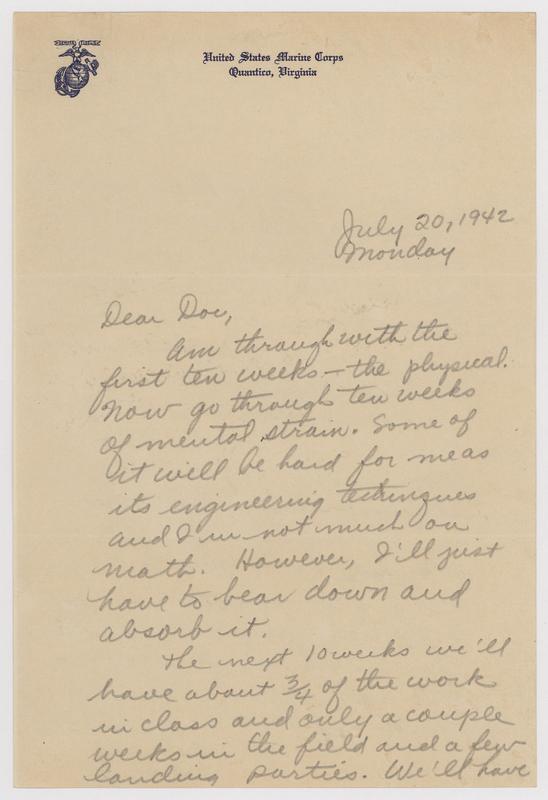 United States Marine Corps
Quantico, Virginia
July 20, 1942
Monday
Dear Doc,
Am through with the
first ten weeks — the physical.
Now go through ten weeks
of mental strain. Some of
it will be hard for me as
its engineering techniques
and I'm not much on
math. However, I'll just
have to bear down and
absorb it.
The next 10 weeks we'll
have about 3/4 of the work
in class and only a couple
weeks in the field and a few
landing parties. We'll have